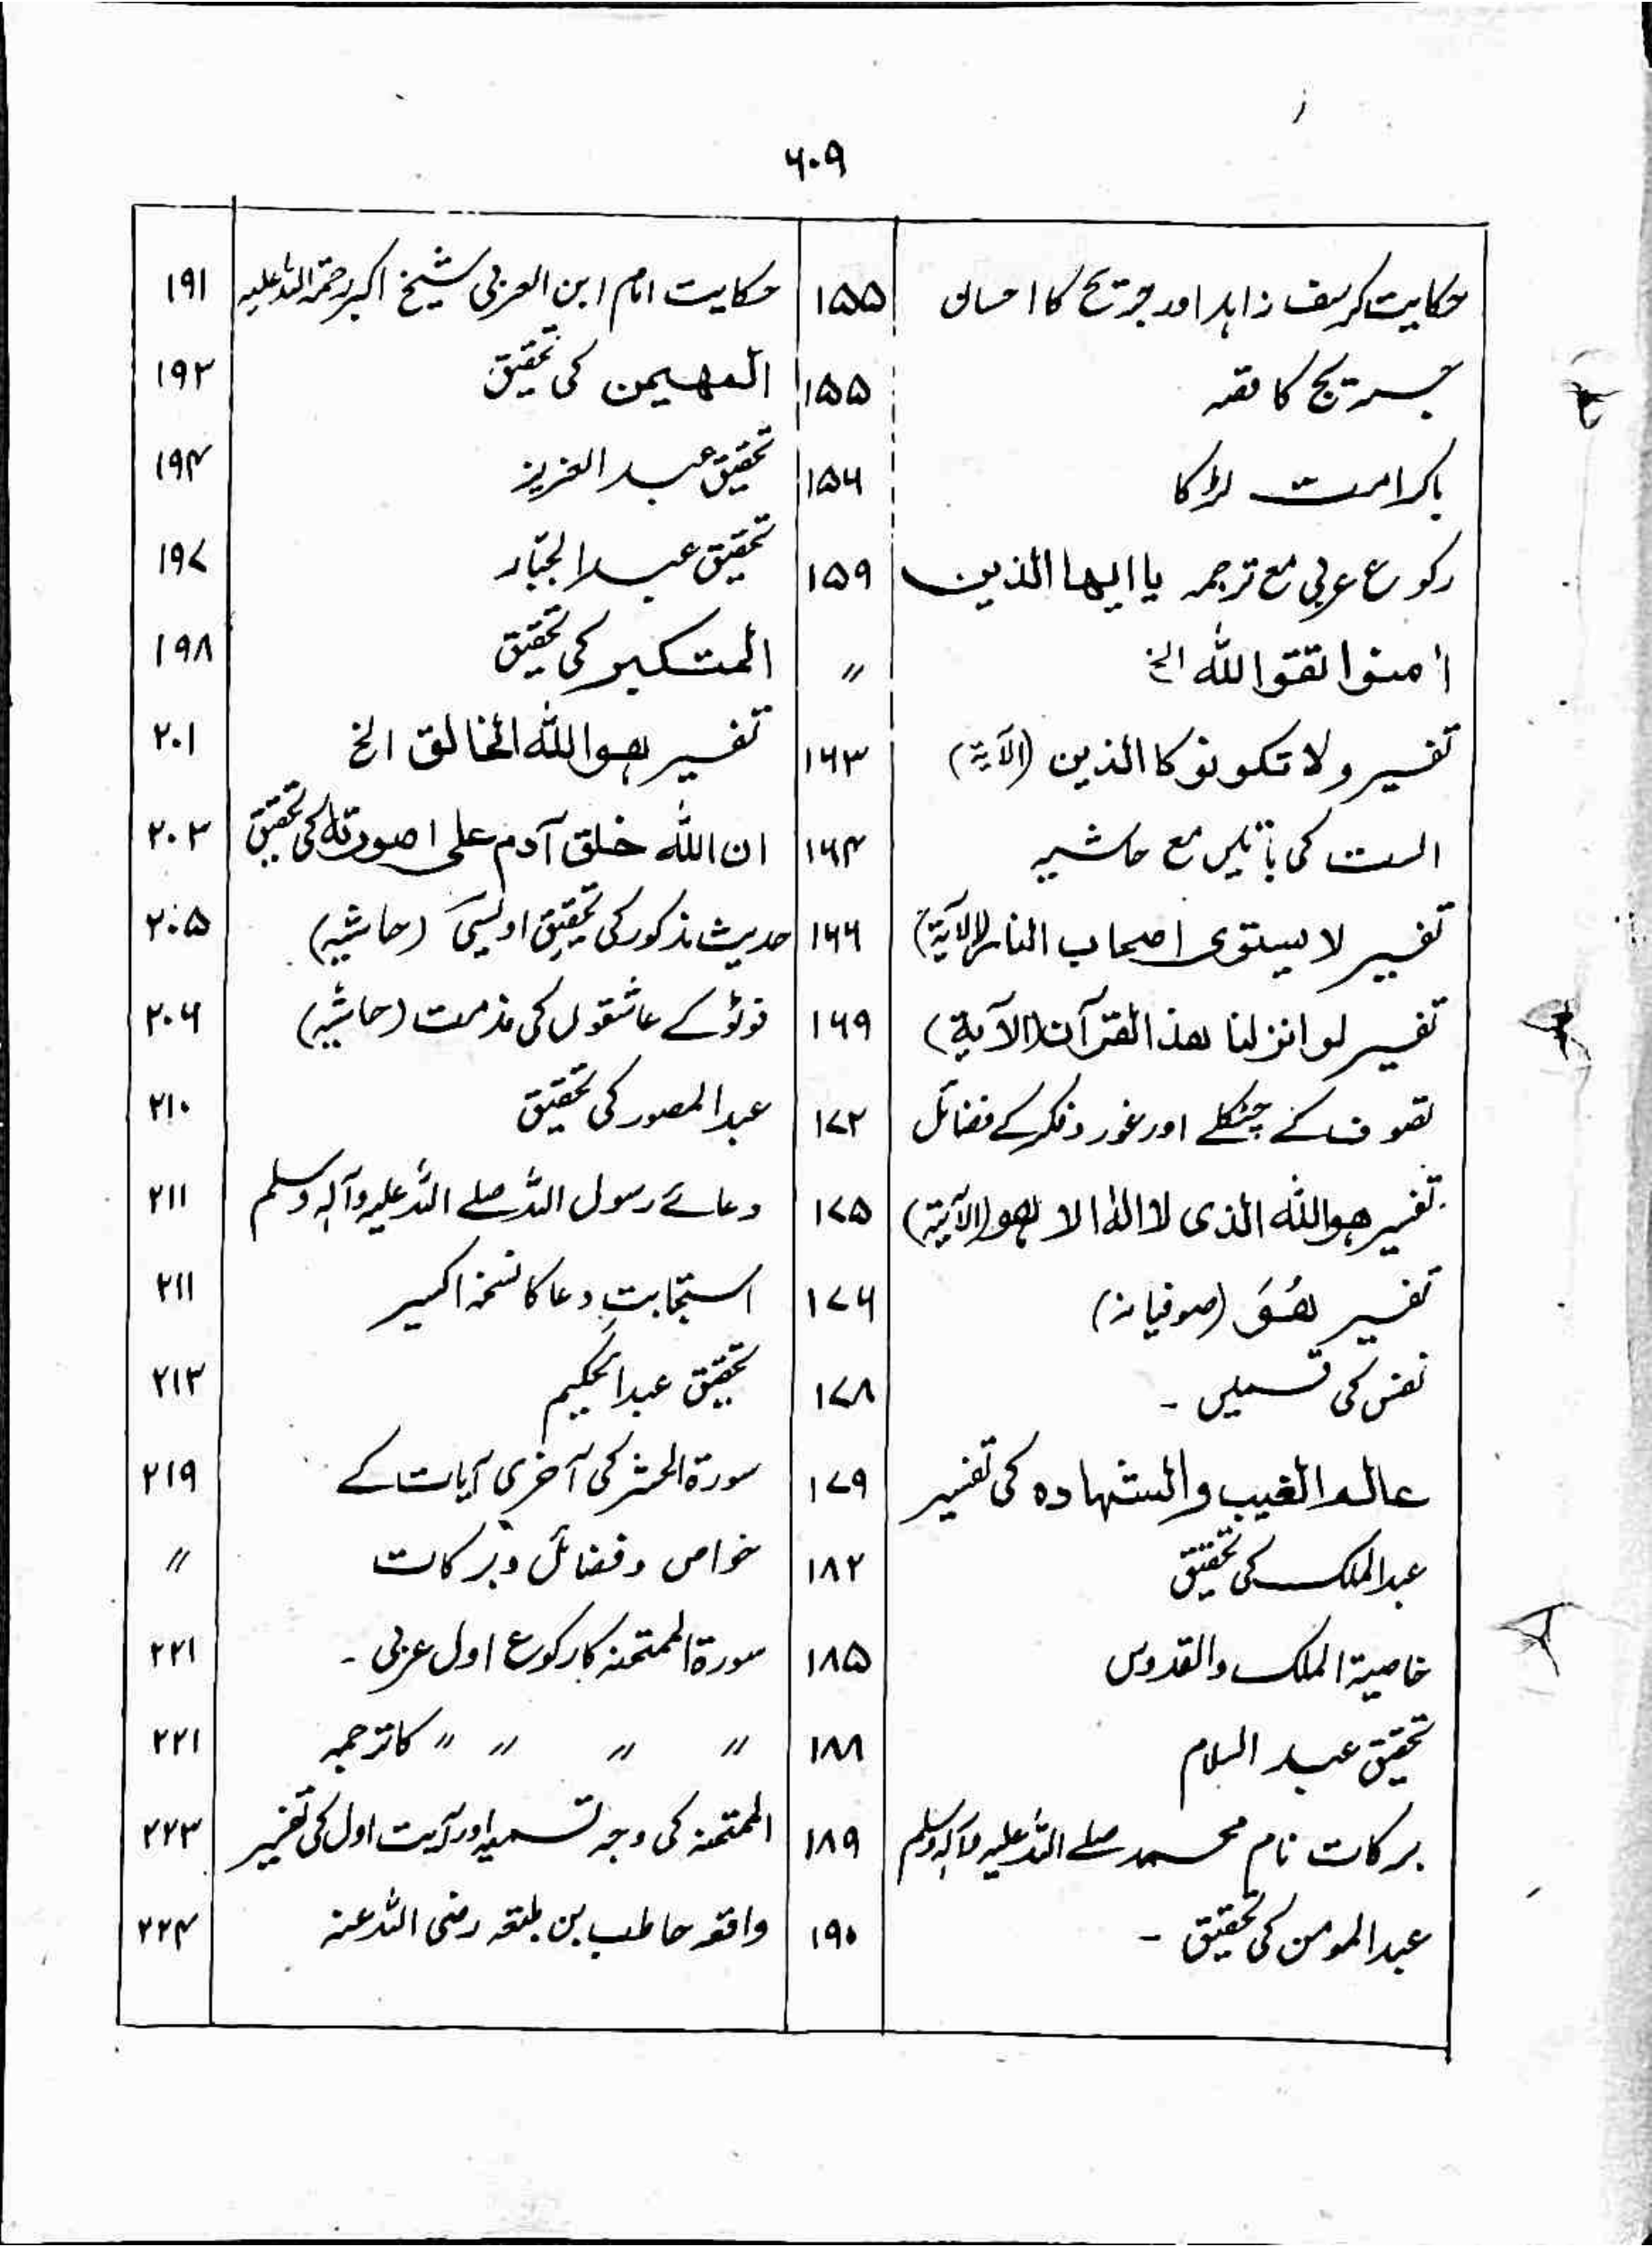 ۶۰۹
حکایت کرسف زاہد اور جریج کا احسان ۱۵۵
جریج کا قصہ ۱۵۵
باکرامت لڑکا ۱۵۶
رکوع عربی مع ترجمہ یا ایہا الذین ۱۵۹
اٰمنوا اتقوا اللہ الخ ״
تفسیر ولا تکونوکا الذین (الآیۃ) ۱۶۳
الست کی باتیں مع حاشیہ ۱۶۴
تفسیر لا یستوی اصحاب النار (الآیۃ) ۱۶۶
تفسیر لو انزلنا ھذا القرآن (الآیۃ) ۱۶۹
تصوف کے چٹکلے اور غور و فکر کے فضائل ۱۷۲
تفسیر ھو اللہ الذی لا الہ الا ھو (الآیۃ) ۱۷۵
تفسیر ھُوَ (صوفیانہ) ۱۷۶
نفس کی قسمیں ۔ ۱۷۸
عالم الغیب والشہادہ کی تفسیر ۱۷۹
عبدالملک کی تحقیق ۱۸۲
خاصیۃ الملک والقدوس ۱۸۵
تحقیق عبد السلام ۱۸۸
برکات نام محمد صلے اللہ علیہ وآلہ وسلم ۱۸۹
عبدالمومن کی تحقیق ۔ ۱۹۰
حکایت امام ابن العربی شیخ اکبر رحمۃ اللہ علیہ ۱۹۱
المھیمن کی تحقیق ۱۹۳
تحقیق عبد العزیز ۱۹۴
تحقیق عبد الجبّار ۱۹۷
المتکبر کی تحقیق ۱۹۸
تفسیر ھو اللہ الخالق الخ ۲۰۱
ان اللہ خلق آدم علی صورتہ کی تحقیق ۲۰۳
حدیث مذکور کی تحقیق اویسی (حاشیہ) ۲۰۵
فوٹو کے عاشقوں کی مذمت (حاشیہ) ۲۰۶
عبدالمصور کی تحقیق ۲۱۰
دعائے رسول اللہ صلے اللہ علیہ وآلہ وسلم ۲۱۱
استجابتِ دعا کا نسخہ اکسیر ۲۱۱
تحقیق عبدالحکیم ۲۱۳
سورۃ الحشر کی آخری آیات کے ۲۱۹
خواص و فضائل و برکات ״
سورۃ الممتحنہ کا رکوع اول عربی ۔ ۲۲۱
״ ״ ״ ״ کا ترجمہ ۲۲۱
الممتحنہ کی وجہ تسمیہ اور آیت اول کی تفسیر ۲۲۳
واقعہ حاطب بن بلتعہ رضی اللہ عنہ ۲۲۴